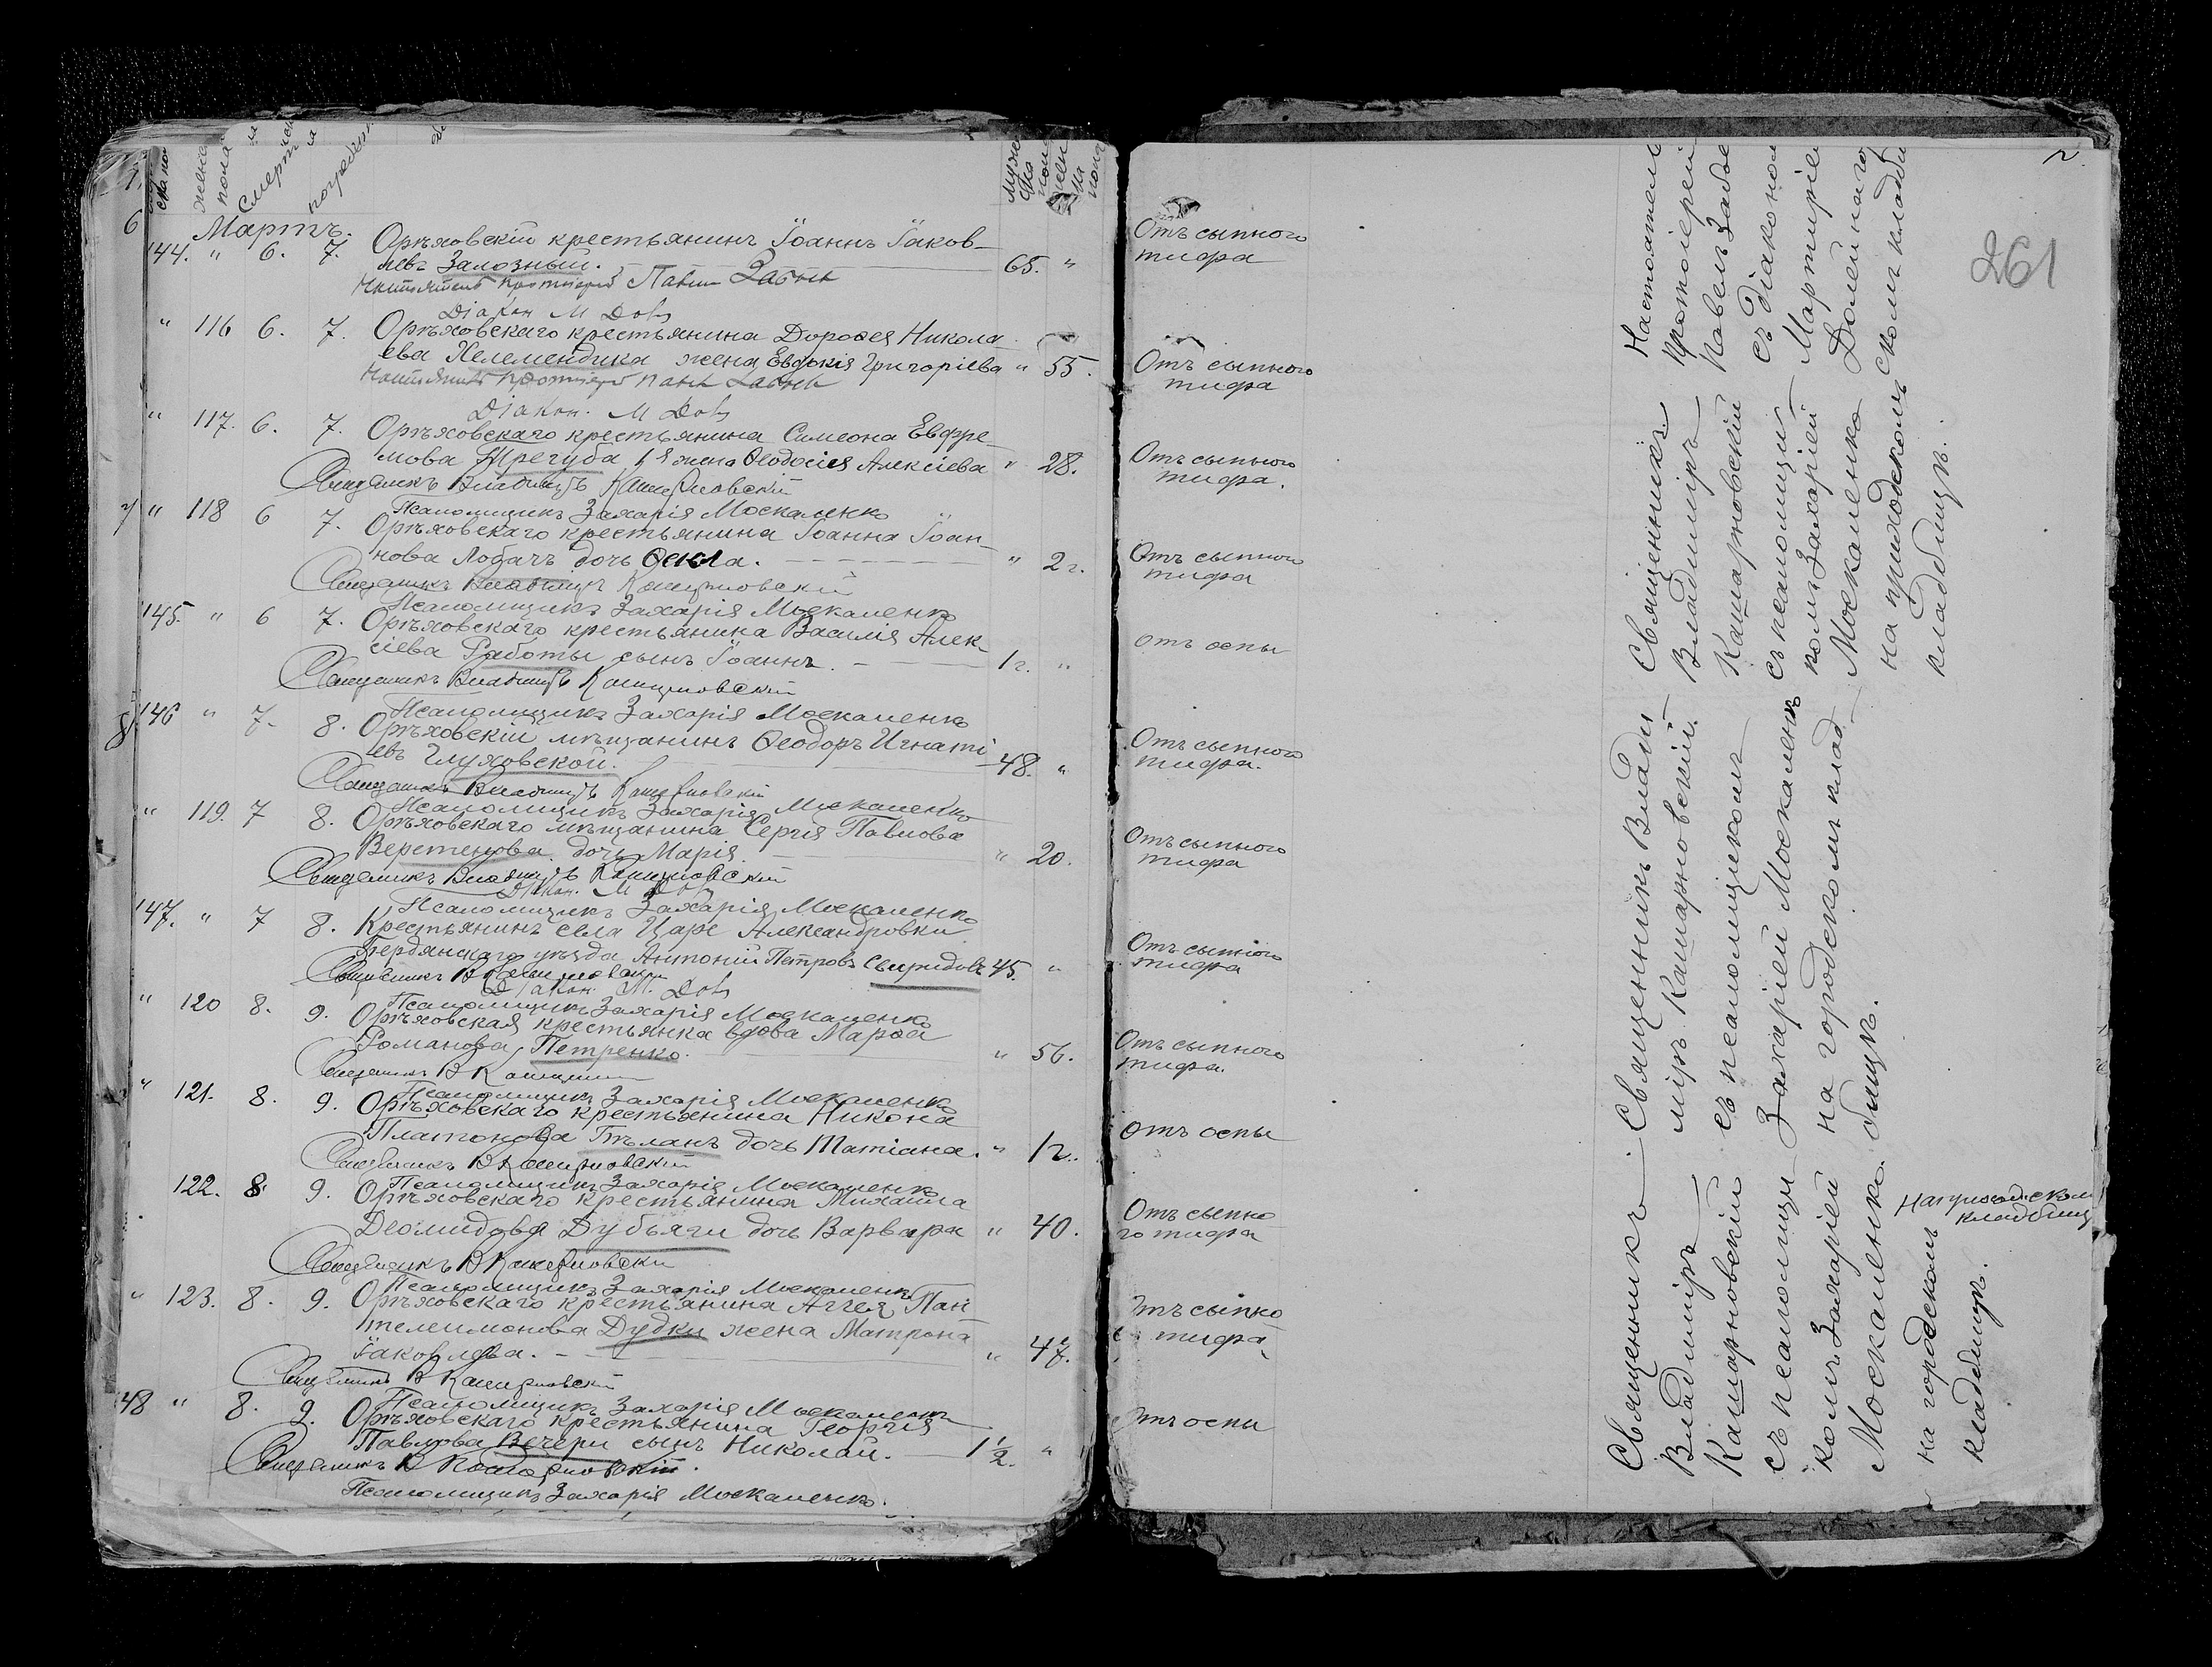 мужеска пола
женска пола
Смерти
погребен
мужеска пола
женска пола
Мартъ.
144. " 6. 7. Орѣховскій крестьянинъ Іоаннъ Іаков-
левъ Залозный. 65. "
Настоятель Протоіерей Павелъ
Діакон М Dol
" 116 6. 7. Орѣховскаго крестьянина Дороѳея Никола
ева Келемендика жена Евдокія Григоріева " 55.
Протоіерей
Діакон. М Dol
" 117. 6. 7. Орѣховскаго крестьянина Симеона Евфре-
мова Трегуба 1я жена Ѳеодосія Алексіева " 28.
Священникъ Владиміръ Кашарновскій
Псаломщикъ Захарія Москаленко
" 118 6 7. Орѣховскаго крестьянина Іоанна Іоан-
нова Лобачъ дочь Ѳекла. " 2 г.
Священникъ Владиміръ Кашарновскій
Псаломщикъ Захарія Москаленко
145. " 6 7. Орѣховскаго крестьянина Василія Алек-
сіева Работы сынъ Іоаннъ. 1 г. "
Священникъ Владиміръ Кашарновскій
Псаломщикъ Захарія Москаленко
146 " 7. 8. Орѣховскій мѣщанинъ Ѳеодоръ Игнаті
евъ Глуховской. 48. "
Священникъ Владиміръ Кашарновскій
Псаломщикъ Захарія Москаленко
" 119. 7 8. Орѣховскаго мѣщанина Сергія Павлова
Веретенова дочь Марія. " 20.
Священникъ Владиміръ Кашарновскій
Діакон. М Dol
Псаломщикъ Захарія Москаленко
147. " 7 8. Крестьянинъ села Царе Александровки
Бердянскаго уѣзда Антоній Петровъ Свиридовъ 45. "
Священникъ В Кашарновскій
Діакон. М. Dol
Псаломщикъ Захарія Москаленко
" 120 8. 9. Орѣховская крестьянка вдова Марѳа
Романова Петренко. " 56.
Священникъ В
Псаломщикъ Захарія Москаленко
" 121. 8. 9. Орѣховскаго крестьянина Никона
Платонова Гѣланъ дочь Татіана. " 1 г.
Священникъ В Кашарновскій
Псаломщикъ Захарія Москаленко
122. 8. 9. Орѣховскаго крестьянина Михаила
Деомидова Дубъяги дочь Варвара " 40.
Священникъ В Кашарновскій
Псаломщикъ Захарія Москаленко
" 123. 8. 9. Орѣховскаго крестьянина Аггея Пан
телеимонова Дудки жена Матрона
Іаковлева. " 47.
Священникъ В Кашарновскій
Псаломщикъ Захарія Москаленко
48 " 8. 9. Орѣховскаго крестьянина Георгія
Павлова Вечери сынъ Николай. 1 1/2. "
Священникъ В Кашарновскій.
Псаломщикъ Захарія Москаленко.
Отъ сыпного
тифа
Отъ сыпного
тифа
Отъ сыпного
тифа.
Отъ сыпного
тифа
отъ оспы
Отъ сыпного
тифа.
Отъ сыпного
тифа
Отъ сыпного
тифа
Отъ сыпного
тифа.
отъ оспы
Отъ сыпно
го тифа
Отъ сыпно
тифа
Отъ оспы
Настоятель
протоіерей
Павелъ
съ діакономъ
Мартиріе
на приходскомъ
кладбищѣ.
Священникъ
Владиміръ
Кашарновскій
съ псаломщи-
комъ Захаріей
Москаленко
Священникъ Влади
міръ Кашарновскій
съ псаломщикомъ
Захаріей Москаленко
на городскомъ клад-
бищѣ.
Священникъ
Владиміръ
Кашарновскій
съ псаломщи
комъ Захаріей
Москаленко
на городскомъ
кладбищѣ.
На приходскомъ
кладбищ
261